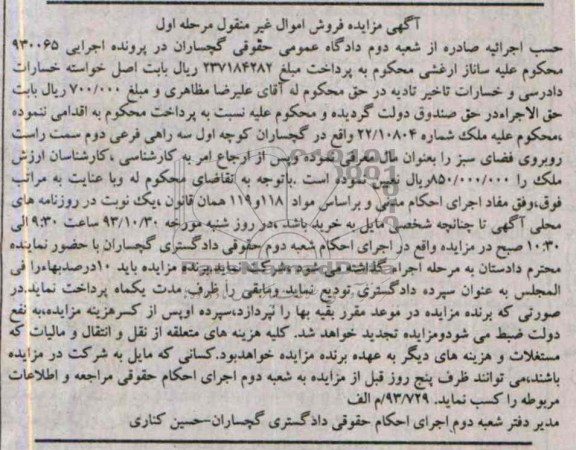 آگهی مزایده فروش اموال غیر منقول مرحله اول
حسب اجرائیه صادره از شعبه دوم دادگاه عمومی حقوقی گچساران در پرونده اجرایی ۹۳۰۰۶۵
محکوم علیه ساناز ارغشی محکوم به پرداخت مبلغ ۲۳۷۱۸۴۲۸۲ ریال بابت اصل خواسته خسارات
دادرسی و خسارات تاخیر تادیه در حق محکوم له آقای علیرضا مظاهری و مبلغ ۷۰۰/۰۰۰ ریال بابت
حق الاجراءدر حق صندوق دولت گردیده و محکوم علیه نسبت به پرداخت محکوم به اقدامی ننموده
،محکوم علیه ملک شماره ۲۲/۱۰۸۰۴ واقع در گچساران کوچه اول سه راهی فرعی دوم سمت راست
روبروی فضای سبز را بعنوان مال معرفی نموده وپس از ارجاع امر به کارشناسی ،کارشناسان ارزش
ملک را ۸۵۰/۰۰۰/۰۰۰ریال تعیین نموده است .باتوجه به تقاضای محکوم له وبا عنایت به مراتب
فوق،وفق مفاد اجرای احکام مدنی و براساس مواد ۱۱۸و۱۱۹ همان قانون ،یک نوبت در روزنامه های
محلی آگهی تا چنانچه شخصی مایل به خرید باشد ،در روز شنبه مورخه ۹۳/۱۰/۳۰ ساعت ۹:۳۰ الی
۱۰:۳۰ صبح در مزایده واقع در اجرای احکام شعبه دوم حقوقی دادگستری گچساران با حضور نماینده
محترم دادستان به مرحله اجراء گذاشته می شود،شرکت نماید.برنده مزایده باید ۱۰درصدبهاءرا فی
المجلس به عنوان سپرده دادگستری تودیع نماید ومابقی را ظرف مدت یکماه پرداخت نماید.در
صورتی که برنده مزایده در موعد مقرر بقیه بها را نپردازد،سپرده اوپس از کسرهزینه مزایده،به نفع
دولت ضبط می شودومزایده تجدید خواهد شد. کلیه هزینه های متعلقه از نقل و انتقال و مالیات که
مستغلات و هزینه های دیگر به عهده برنده مزایده خواهدبود.کسانی که مایل به شرکت در مزایده
باشند،می توانند ظرف پنج روز قبل از مزایده به شعبه دوم اجرای احکام حقوقی مراجعه و اطلاعات
مربوطه را کسب نماید. ۹۳/۷۲۹/م الف
مدیر دفتر شعبه دوم اجرای احکام حقوقی دادگستری گچساران-حسین کناری